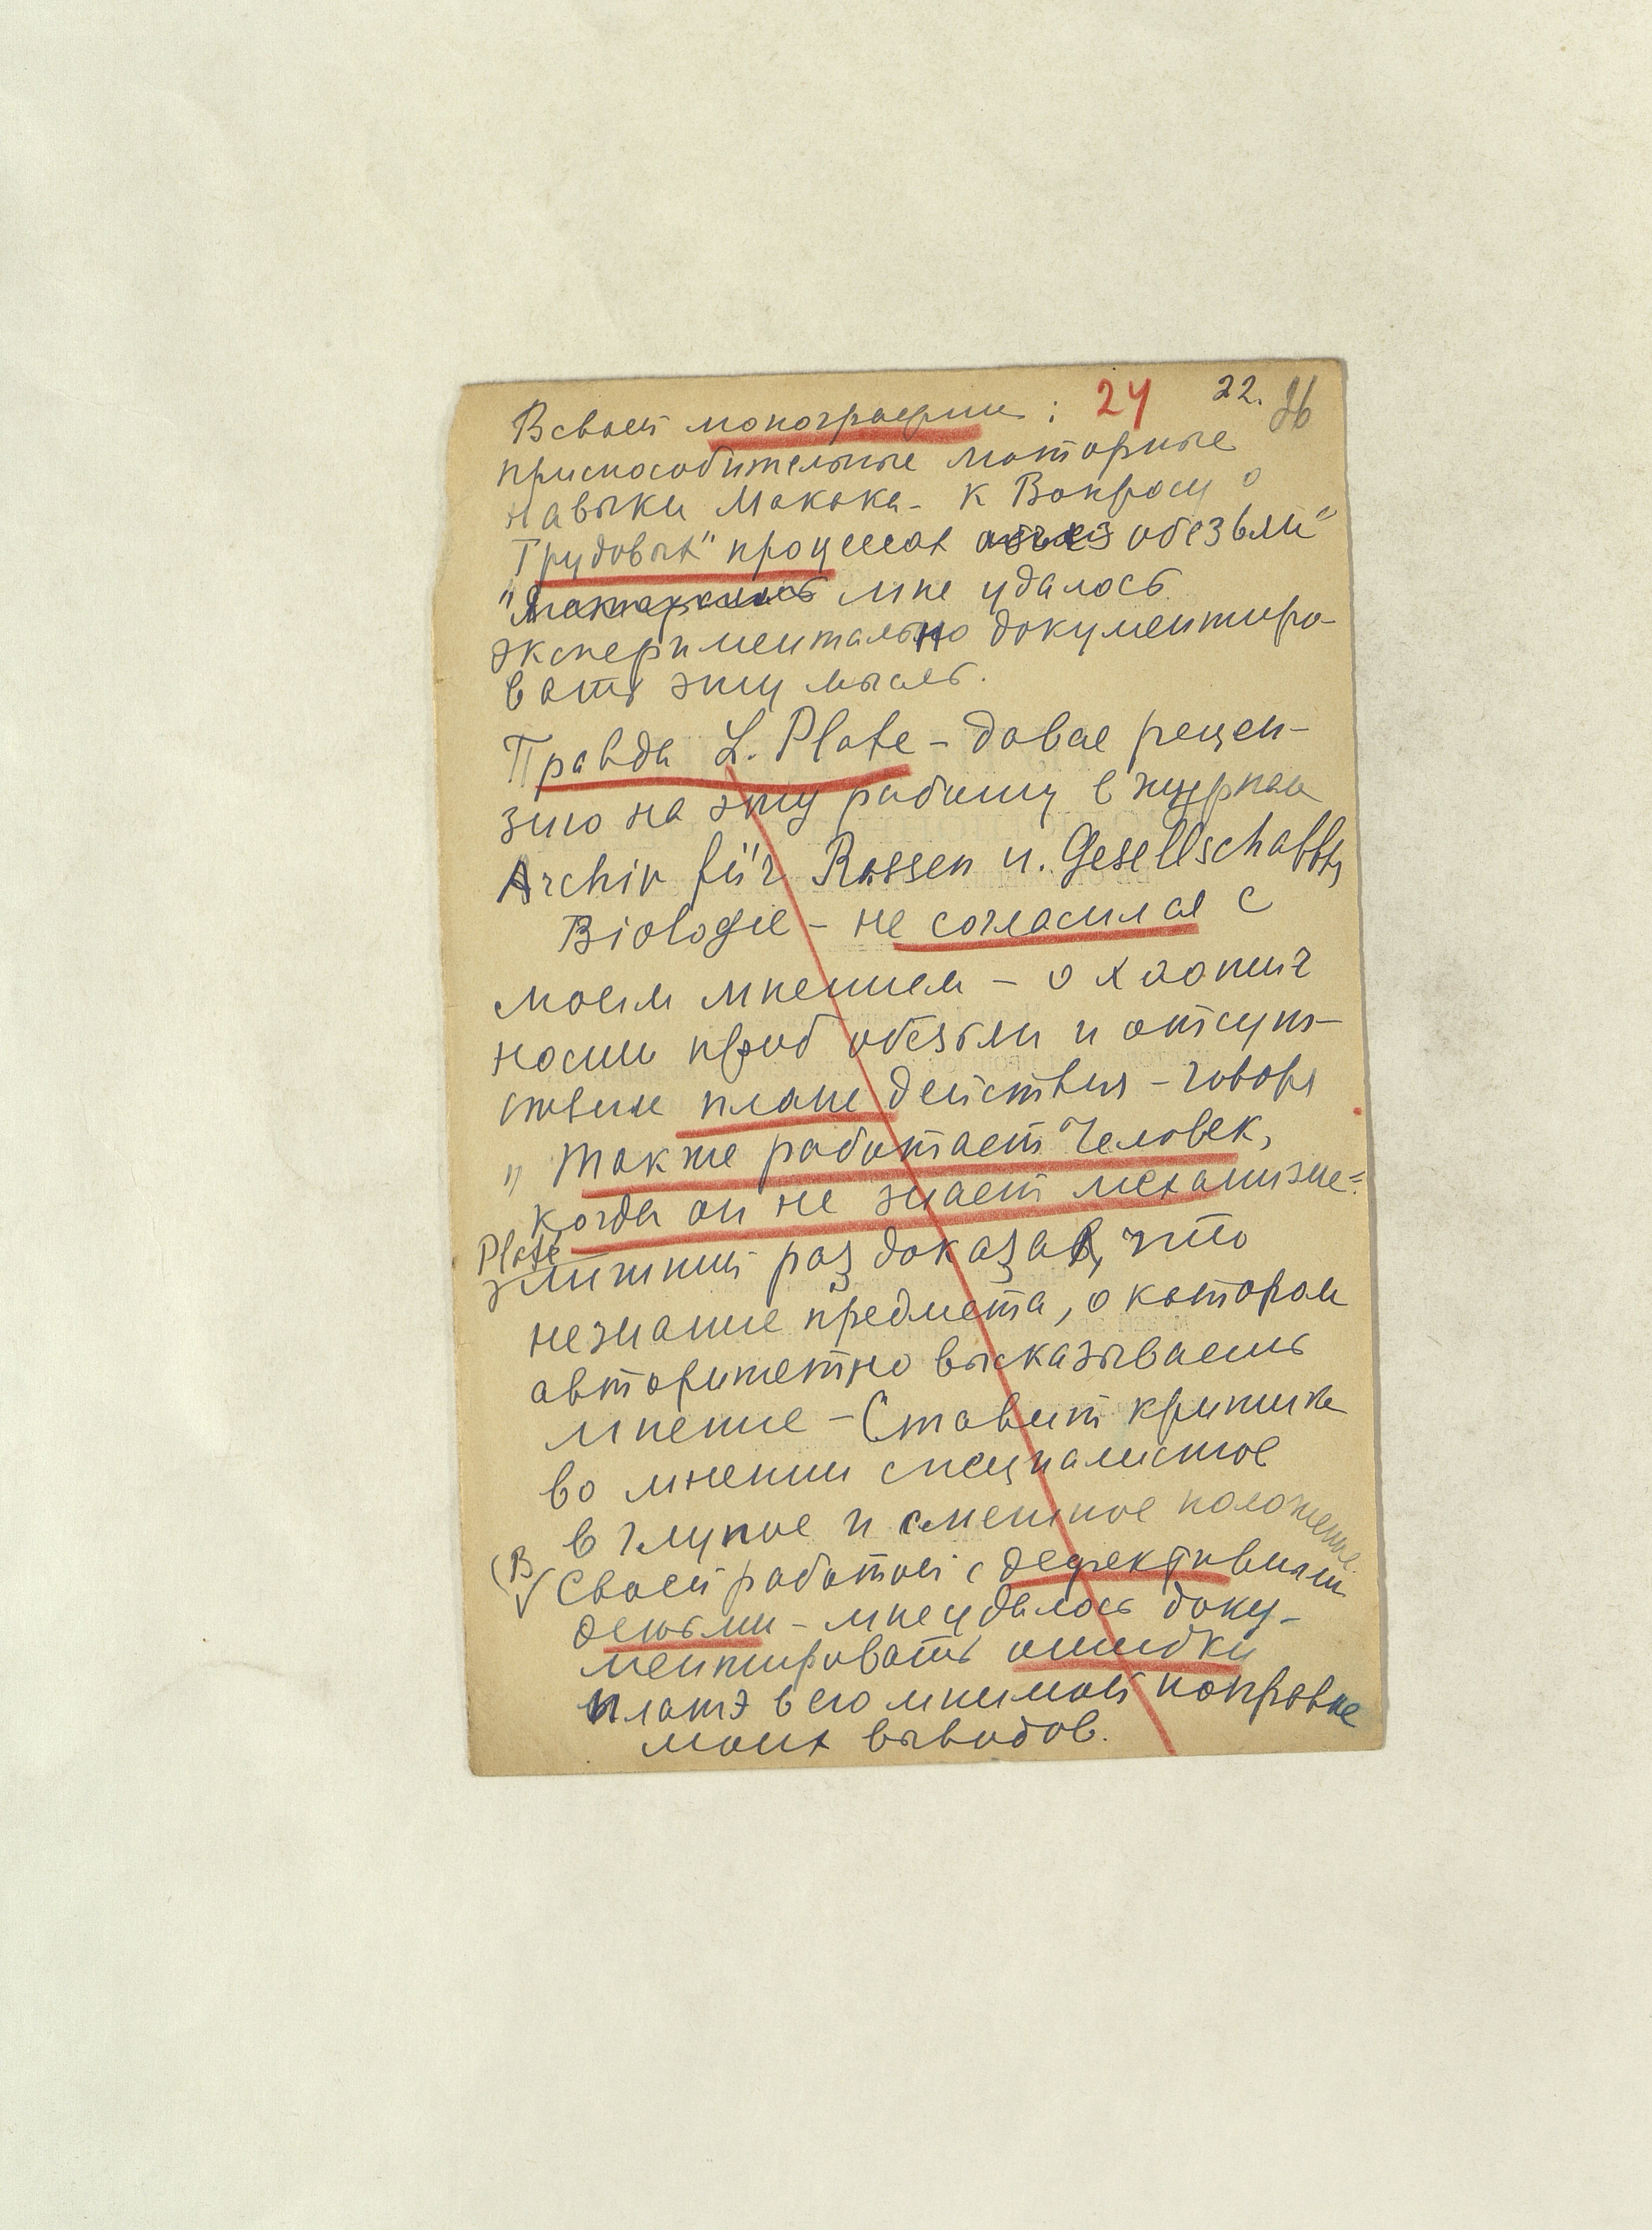 В своей монографии: 24 22. 26
приспособительные моторные
навыки макака - К Вопросу о
Трудовых" процессах обезьян"
" мне удалось
экспериментально документиро-
вать эту мысль.
Правда L. Plate - давая рецен-
зию на эту работу в журнале
Archiv für Rassen u. Gesellschafts
Biologie - не согласился с
моим мнением - о хаотич
ности проб обезьян и отсут-
ствии плана действия - говоря
" Также работает Человек,
когда он не знает механизме"
Plate лишний раз доказал, что
незнание предмета, о котором
авторитетно высказываешь
мнение - Ставит критика
во мнении специалистов
в глупое и смешное положение
(В Своей работой с дефективными
детьми - мне удалось доку-
ментировать ошибки
Платэ в его мнимой поправке
моих выводов.